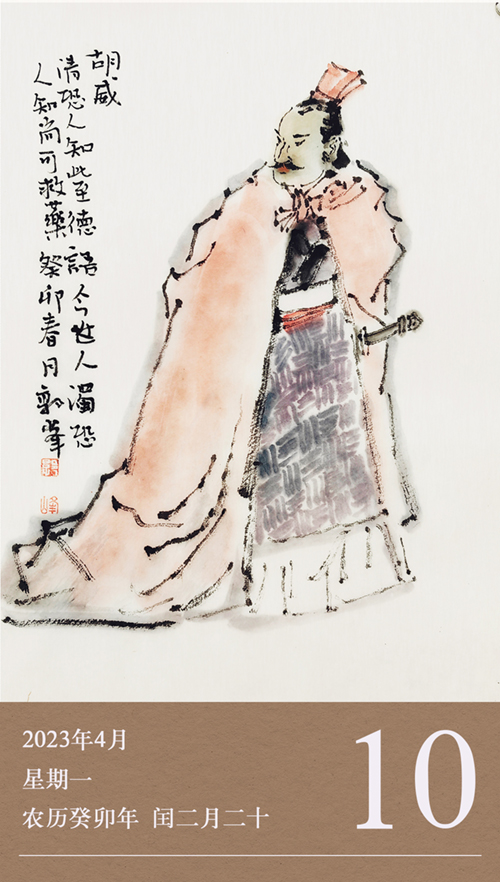 胡威
清恐人知此至德語今世人濁恐
人知尚可救藥癸卯春月郭峯
2023年4月
星期一
农历癸卯年 闰二月二十
10